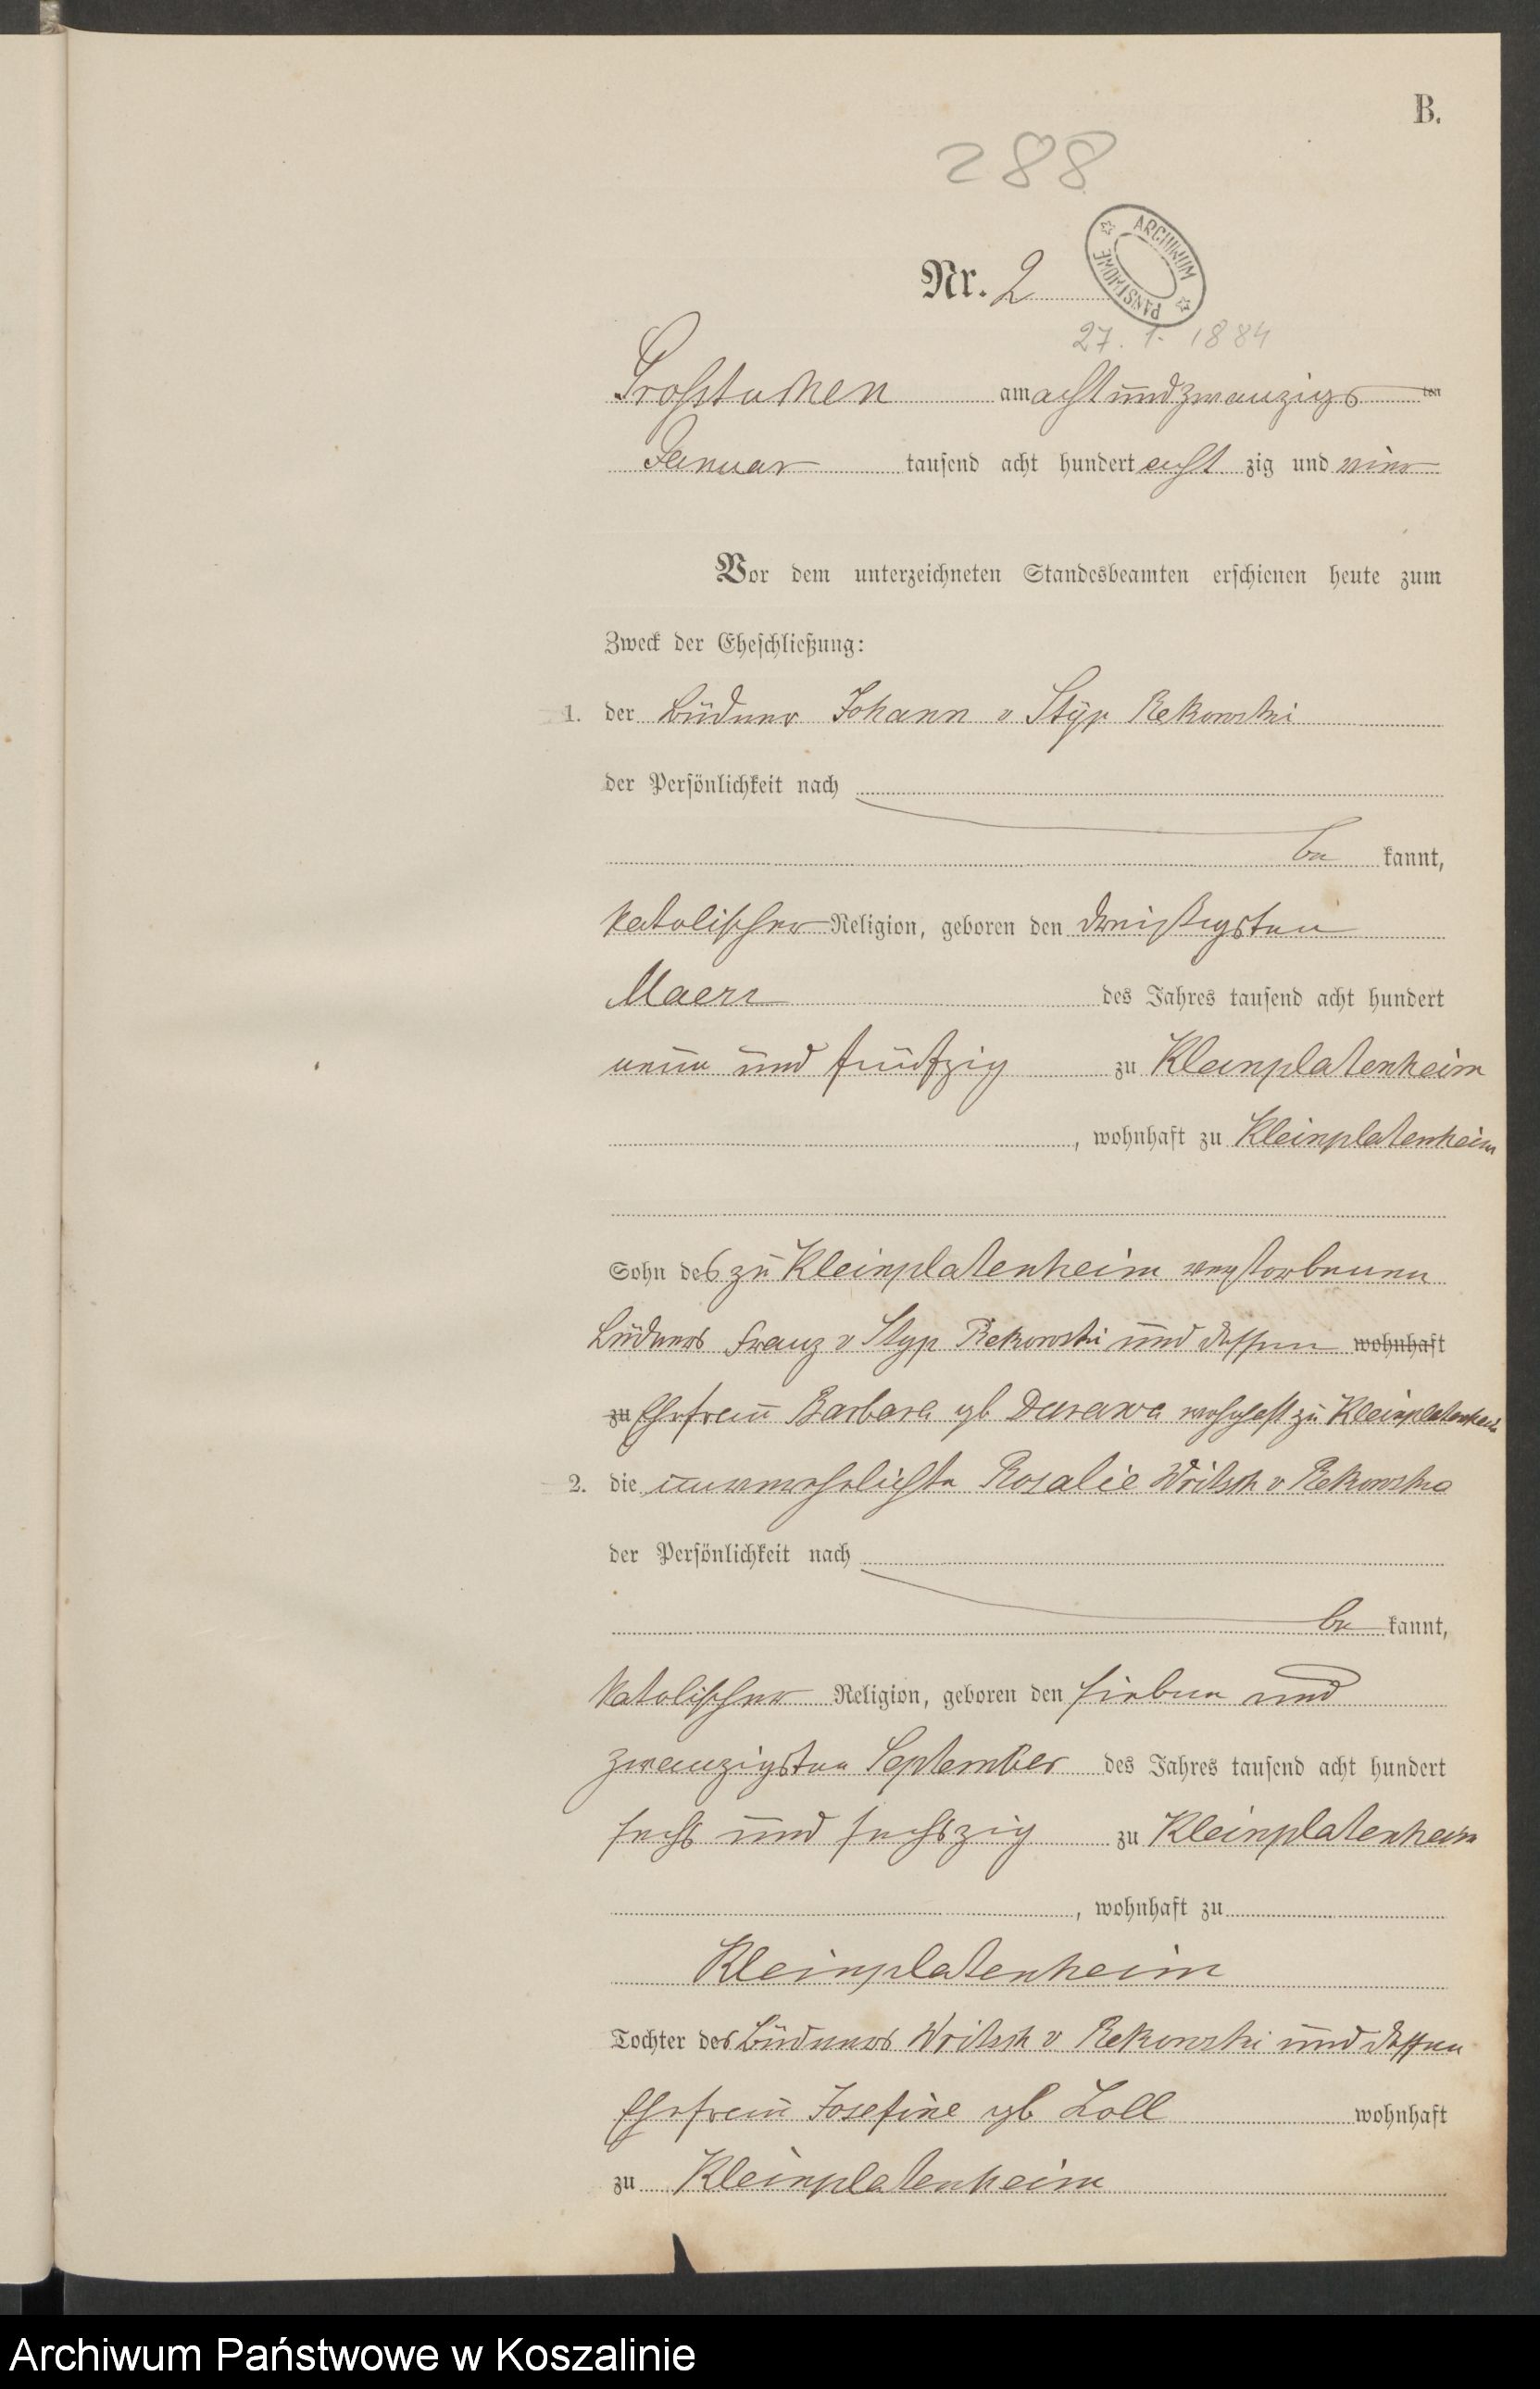 B.
288
Nr. 2
ARCHIWUM PAŃSTWOWE
27. 1. 1884
Großtuchen am achtundzwanzigsten
Januar tausend acht hundert acht zig und vier
Vor dem unterzeichneten Standesbeamten erschienen heute zum
Zweck der Eheschließung:
1. der Büdner Johann v Styp Rekowski
der Persönlichkeit nach
be kannt,
katolischer Religion, geboren den dreißigsten
Maerz des Jahres tausend acht hundert
neun und fünfzig zu Kleinplatenheim
, wohnhaft zu Kleinplatenheim
Sohn des zu Kleinplatenheim verstorbenen
Büdners Franz v Styp Rekowski und dessen wohnhaft
zu Ehefrau Barbara gb Durawa wohnhaft zu Kleinplatenheim
2. die unverehelichte Rosalie Writsch v Rekowska
der Persönlichkeit nach
be kannt,
katolischer Religion, geboren den sieben und
zwanzigsten September des Jahres tausend acht hundert
sechs und sechszig zu Kleinplatenheim
, wohnhaft zu
Kleinplatenheim
Tochter des Büdners Writsch v Rekowski und dessen
Ehefrau Josefine gb Loll wohnhaft
zu Kleinplatenheim
Archiwum Państwowe w Koszalinie